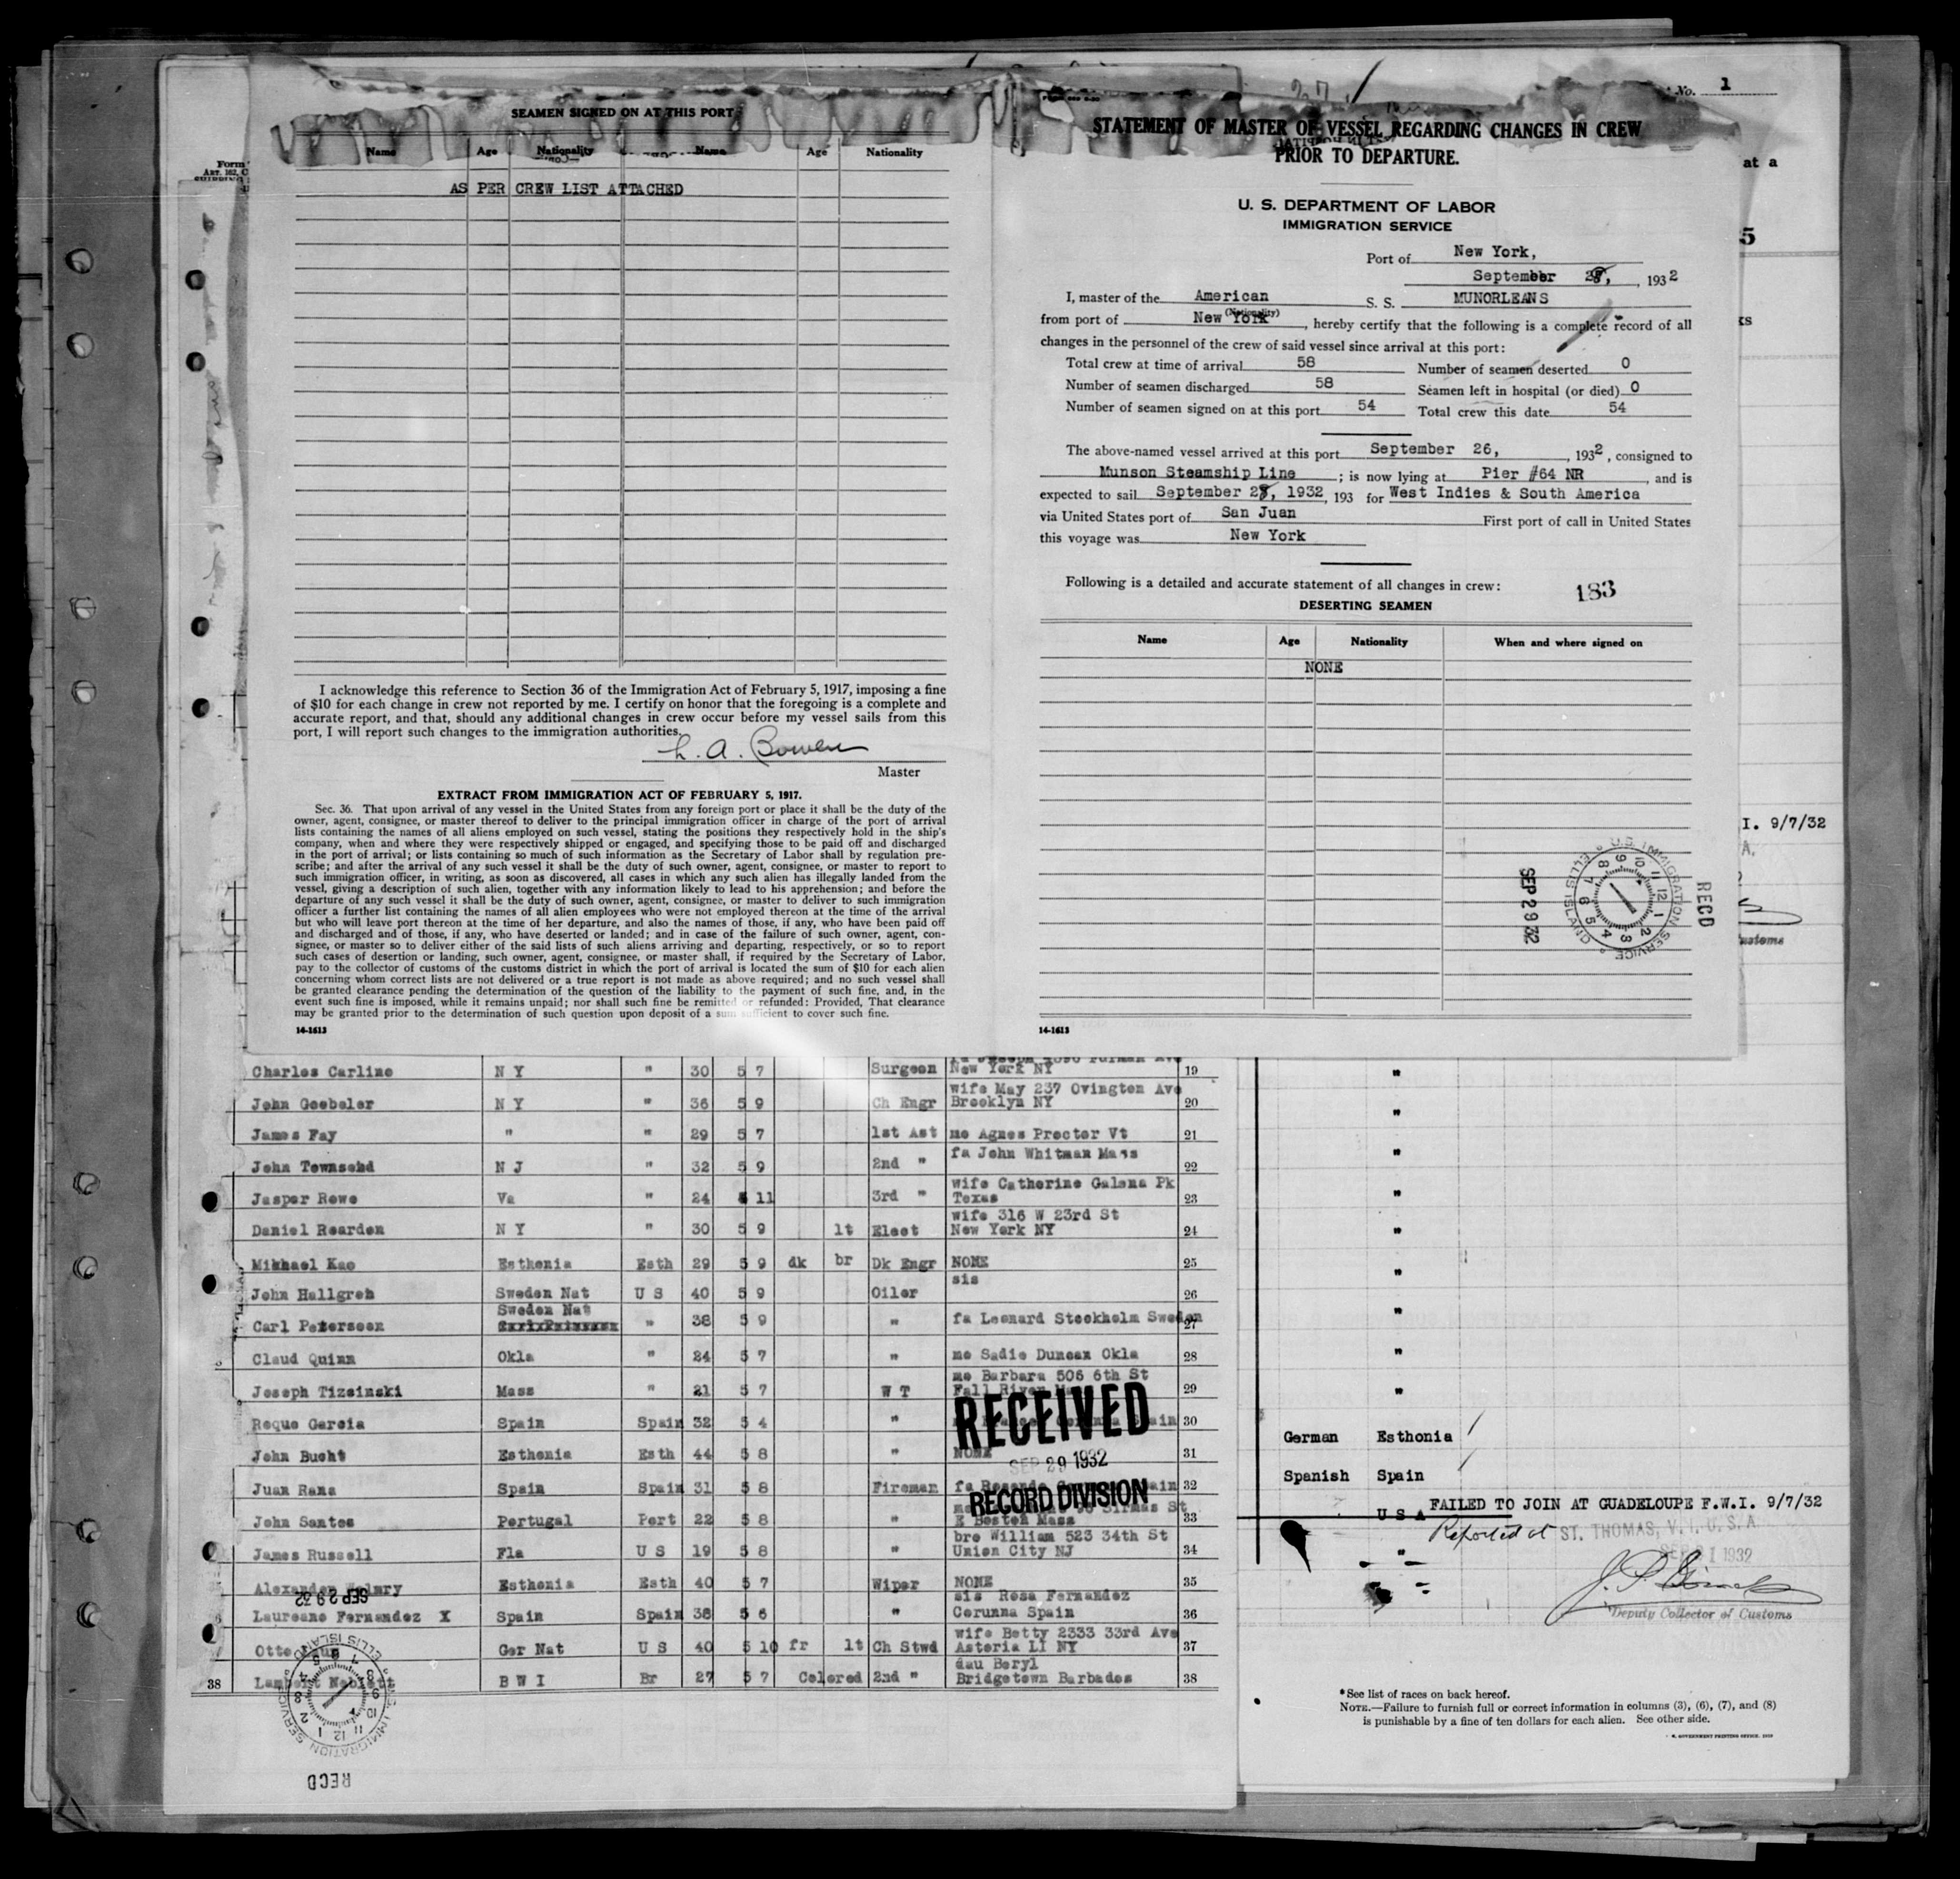 SEAMEN SIGNED ON AT THIS PORT
Name Age Nationality Name Age Nationality
AS PER CREW LIST ATTACHED
I acknowledge this reference to Section 36 of the Immigration Act of February 5, 1917, imposing a fine
of $10 for each change in crew not reported by me. I certify on honor that the foregoing is a complete and
accurate report, and that, should any additional changes in crew occur before my vessel sails from this
port, I will report such changes to the immigration authorities.
L. A. Bowen
Master
EXTRACT FROM IMMIGRATION ACT OF FEBRUARY 5, 1917.
Sec. 36. That upon arrival of any vessel in the United States from any foreign port or place it shall be the duty of the
owner, agent, consignee, or master thereof to deliver to the principal immigration officer in charge of the port of arrival
lists containing the names of all aliens employed on such vessel, stating the positions they respectively hold in the ship's
company, when and where they were respectively shipped or engaged, and specifying those to be paid off and discharged
in the port of arrival; or lists containing so much of such information as the Secretary of Labor shall by regulation pre-
scribe; and after the arrival of any such vessel it shall be the duty of such owner, agent, consignee, or master to report to
such immigration officer, in writing, as soon as discovered, all cases in which any such alien has illegally landed from the
vessel, giving a description of such alien, together with any information likely to lead to his apprehension; and before the
departure of any such vessel it shall be the duty of such owner, agent, consignee, or master to deliver to such immigration
officer a further list containing the names of all alien employees who were not employed thereon at the time of the arrival
but who will leave port thereon at the time of her departure, and also the names of those, if any, who have been paid off
and discharged and of those, if any, who have deserted or landed; and in case of the failure of such owner, agent, con-
signee, or master so to deliver either of the said lists of such aliens arriving and departing, respectively, or so to report
such cases of desertion or landing, such owner, agent, consignee, or master shall, if required by the Secretary of Labor,
pay to the collector of customs of the customs district in which the port of arrival is located the sum of $10 for each alien
concerning whom correct lists are not delivered or a true report is not made as above required; and no such vessel shall
be granted clearance pending the determination of the question of the liability to the payment of such fine, and, in the
event such fine is imposed, while it remains unpaid; nor shall such fine be remitted or refunded: Provided, That clearance
may be granted prior to the determination of such question upon deposit of a sum sufficient to cover such fine.
14-1613
STATEMENT OF MASTER OF VESSEL REGARDING CHANGES IN CREW
PRIOR TO DEPARTURE.
U. S. DEPARTMENT OF LABOR
IMMIGRATION SERVICE
Port of New York,
September 28, 1932
I, master of the American S. S. MUNORLEANS
(Nationality)
from port of New York, hereby certify that the following is a complete record of all
changes in the personnel of the crew of said vessel since arrival at this port:
Total crew at time of arrival 58 Number of seamen deserted 0
Number of seamen discharged 58 Seamen left in hospital (or died) 0
Number of seamen signed on at this port 54 Total crew this date 54
The above-named vessel arrived at this port September 26, 1932, consigned to
Munson Steamship Line; is now lying at Pier #64 NR, and is
expected to sail September 28, 1932, 193 for West Indies & South America
via United States port of San Juan First port of call in United States
this voyage was New York
Following is a detailed and accurate statement of all changes in crew:
183
DESERTING SEAMEN
Name Age Nationality When and where signed on
NONE
SEP 29 32
U.S. IMMIGRATION SERVICE ELLIS ISLAND
RECD
14-1613
No. 1
at a
5
I. 9/7/32
Form
Charles Carline N Y " 30 5 7 Surgeon New York NY 19
John Goebeler N Y " 36 5 9 Ch Engr wife May 237 Ovington Ave
Brooklyn NY 20
James Fay " " 29 5 7 1st Ast mo Agnes Proctor Vt 21
John Townsend N J " 32 5 9 2nd " fa John Whitman Mass 22
Jasper Rowe Va " 24 11 3rd " wife Catherine Galena Pk
Texas 23
Daniel Rearden N Y " 30 5 9 lt Elect wife 316 W 23rd St
New York NY 24
Mikhael Kao Esthonia Esth 29 5 9 dk br Dk Engr NONE 25
John Hallgren Sweden Nat U S 40 5 9 Oiler sis 26
Carl Peterseen Sweden Nat " 38 5 9 " fa Leonard Stockholm Sweden 27
Claud Quinn Okla " 24 5 7 " mo Sadie Duncan Okla 28
Joseph Tizsinski Mass " 21 5 7 W T mo Barbara 506 6th St
Fall River 29
Roque Garcia Spain Spain 32 5 4 " Spain 30
John Bucht Esthonia Esth 44 5 8 " NONE 31
Juan Rana Spain Spain 31 5 8 Fireman fa Spain 32
John Santos Portugal Port 22 5 8 " St
E Boston Mass 33
James Russell Fla U S 19 5 8 " bro William 523 34th St
Union City NJ 34
Alexander Esthonia Esth 40 5 7 Wiper NONE 35
Laureano Fernandez X Spain Spain 38 5 6 " sis Rosa Fernandez
Corunna Spain 36
Otto Ger Nat U S 40 5 10 fr lt Ch Stwd wife Betty 2333 33rd Ave
Astoria LI NY 37
38 Lambert Neblett B W I Br 27 5 7 Colored 2nd " dau Beryl
Bridgetown Barbados 38
RECEIVED
SEP 29 1932
RECORD DIVISION
SEP 29 32
IMMIGRATION SERVICE ELLIS ISLAND
RECD
German Esthonia
Spanish Spain
U S A FAILED TO JOIN AT GUADELOUPE F.W.I. 9/7/32
Reported at ST. THOMAS, V. I. U. S. A.
1932
Deputy Collector of Customs
*See list of races on back hereof.
NOTE.—Failure to furnish full or correct information in columns (3), (6), (7), and (8)
is punishable by a fine of ten dollars for each alien. See other side.